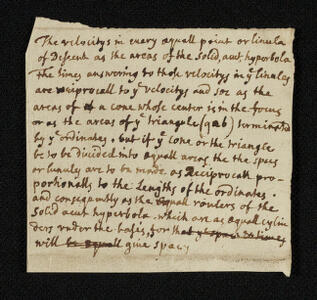 The velocitys in every æquall point or linula
of Descent as the areas of the Solid, acut, hyperbola
The times answering to those velocitys in yͤ linulas
are reciprocall to yͤ velocitys and soe as the
areas of a cone whose center is in the focus
or as the areas of yͤ triangle (gab) terminated
by yͤ ordinates. but if yͤ cone or the triangle
be to be divided into æquall areas the the spaces
or lunulas are to be made as Reciprocall pro-
portionalls to the Lengths of the ordinates.
and consequently as the æquall roulers of the
Solid acut hyperbola. which are as æquall cylin-
ders vnder the bases, for that yͤ spaces in times
will be æquall give spac